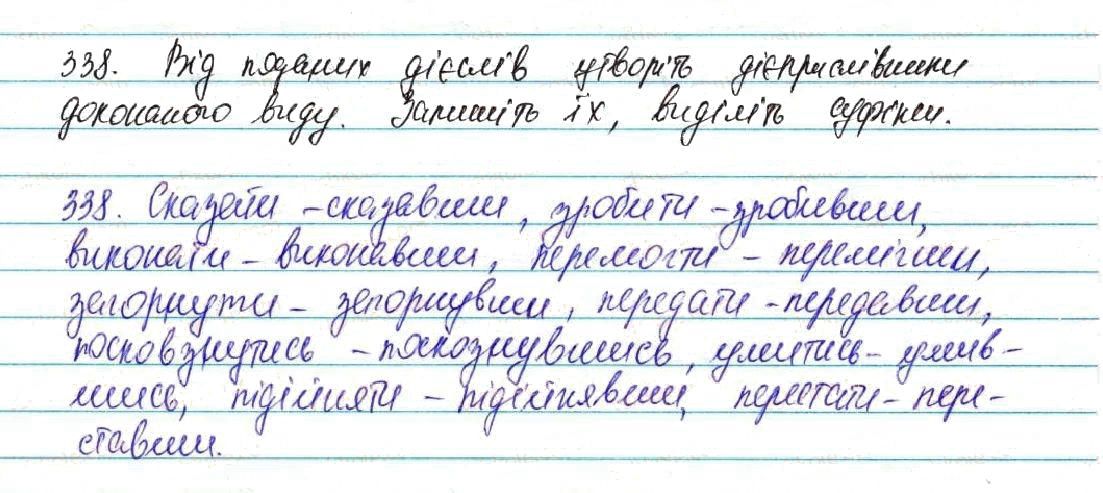 338. Від поданих дієслів утворіть дієприслівники
доконаного виду. Запишіть їх, виділіть суфікси.
338. Сказати - сказавши, зробити - зробивши,
виконати - виконавши, перемогти - перемігши,
загорнути - загорнувши, передати - передавши,
посковзнутись - посковзнувшись, умитись - умив-
шись, підійняти - підійнявши, перестати - пере-
ставши.